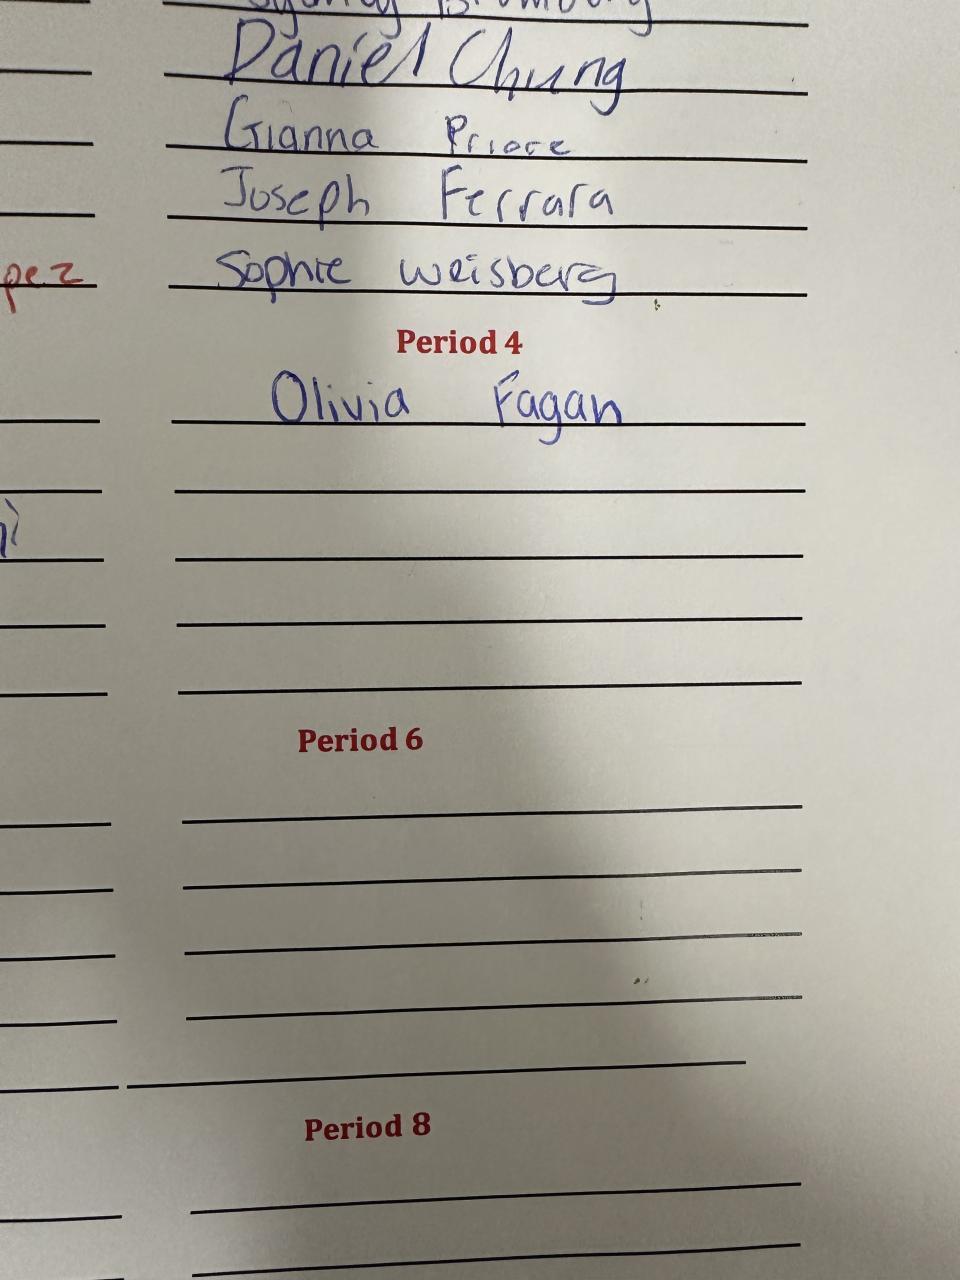 Daniel Chung
Gianna Priore
Joseph Ferrara
pez
Sophie Weisberg
Period 4
Olivia Fagan
Period 6
Period 8